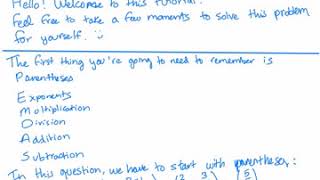 Hello! Welcome to this tutorial!
Feel free to take a few moments to solve this problem
for yourself. :)
The first thing you're going to need to remember is
Parentheses
Exponents
Multiplication
Division
Addition
Subtraction
In this question, we have to start with parentheses: